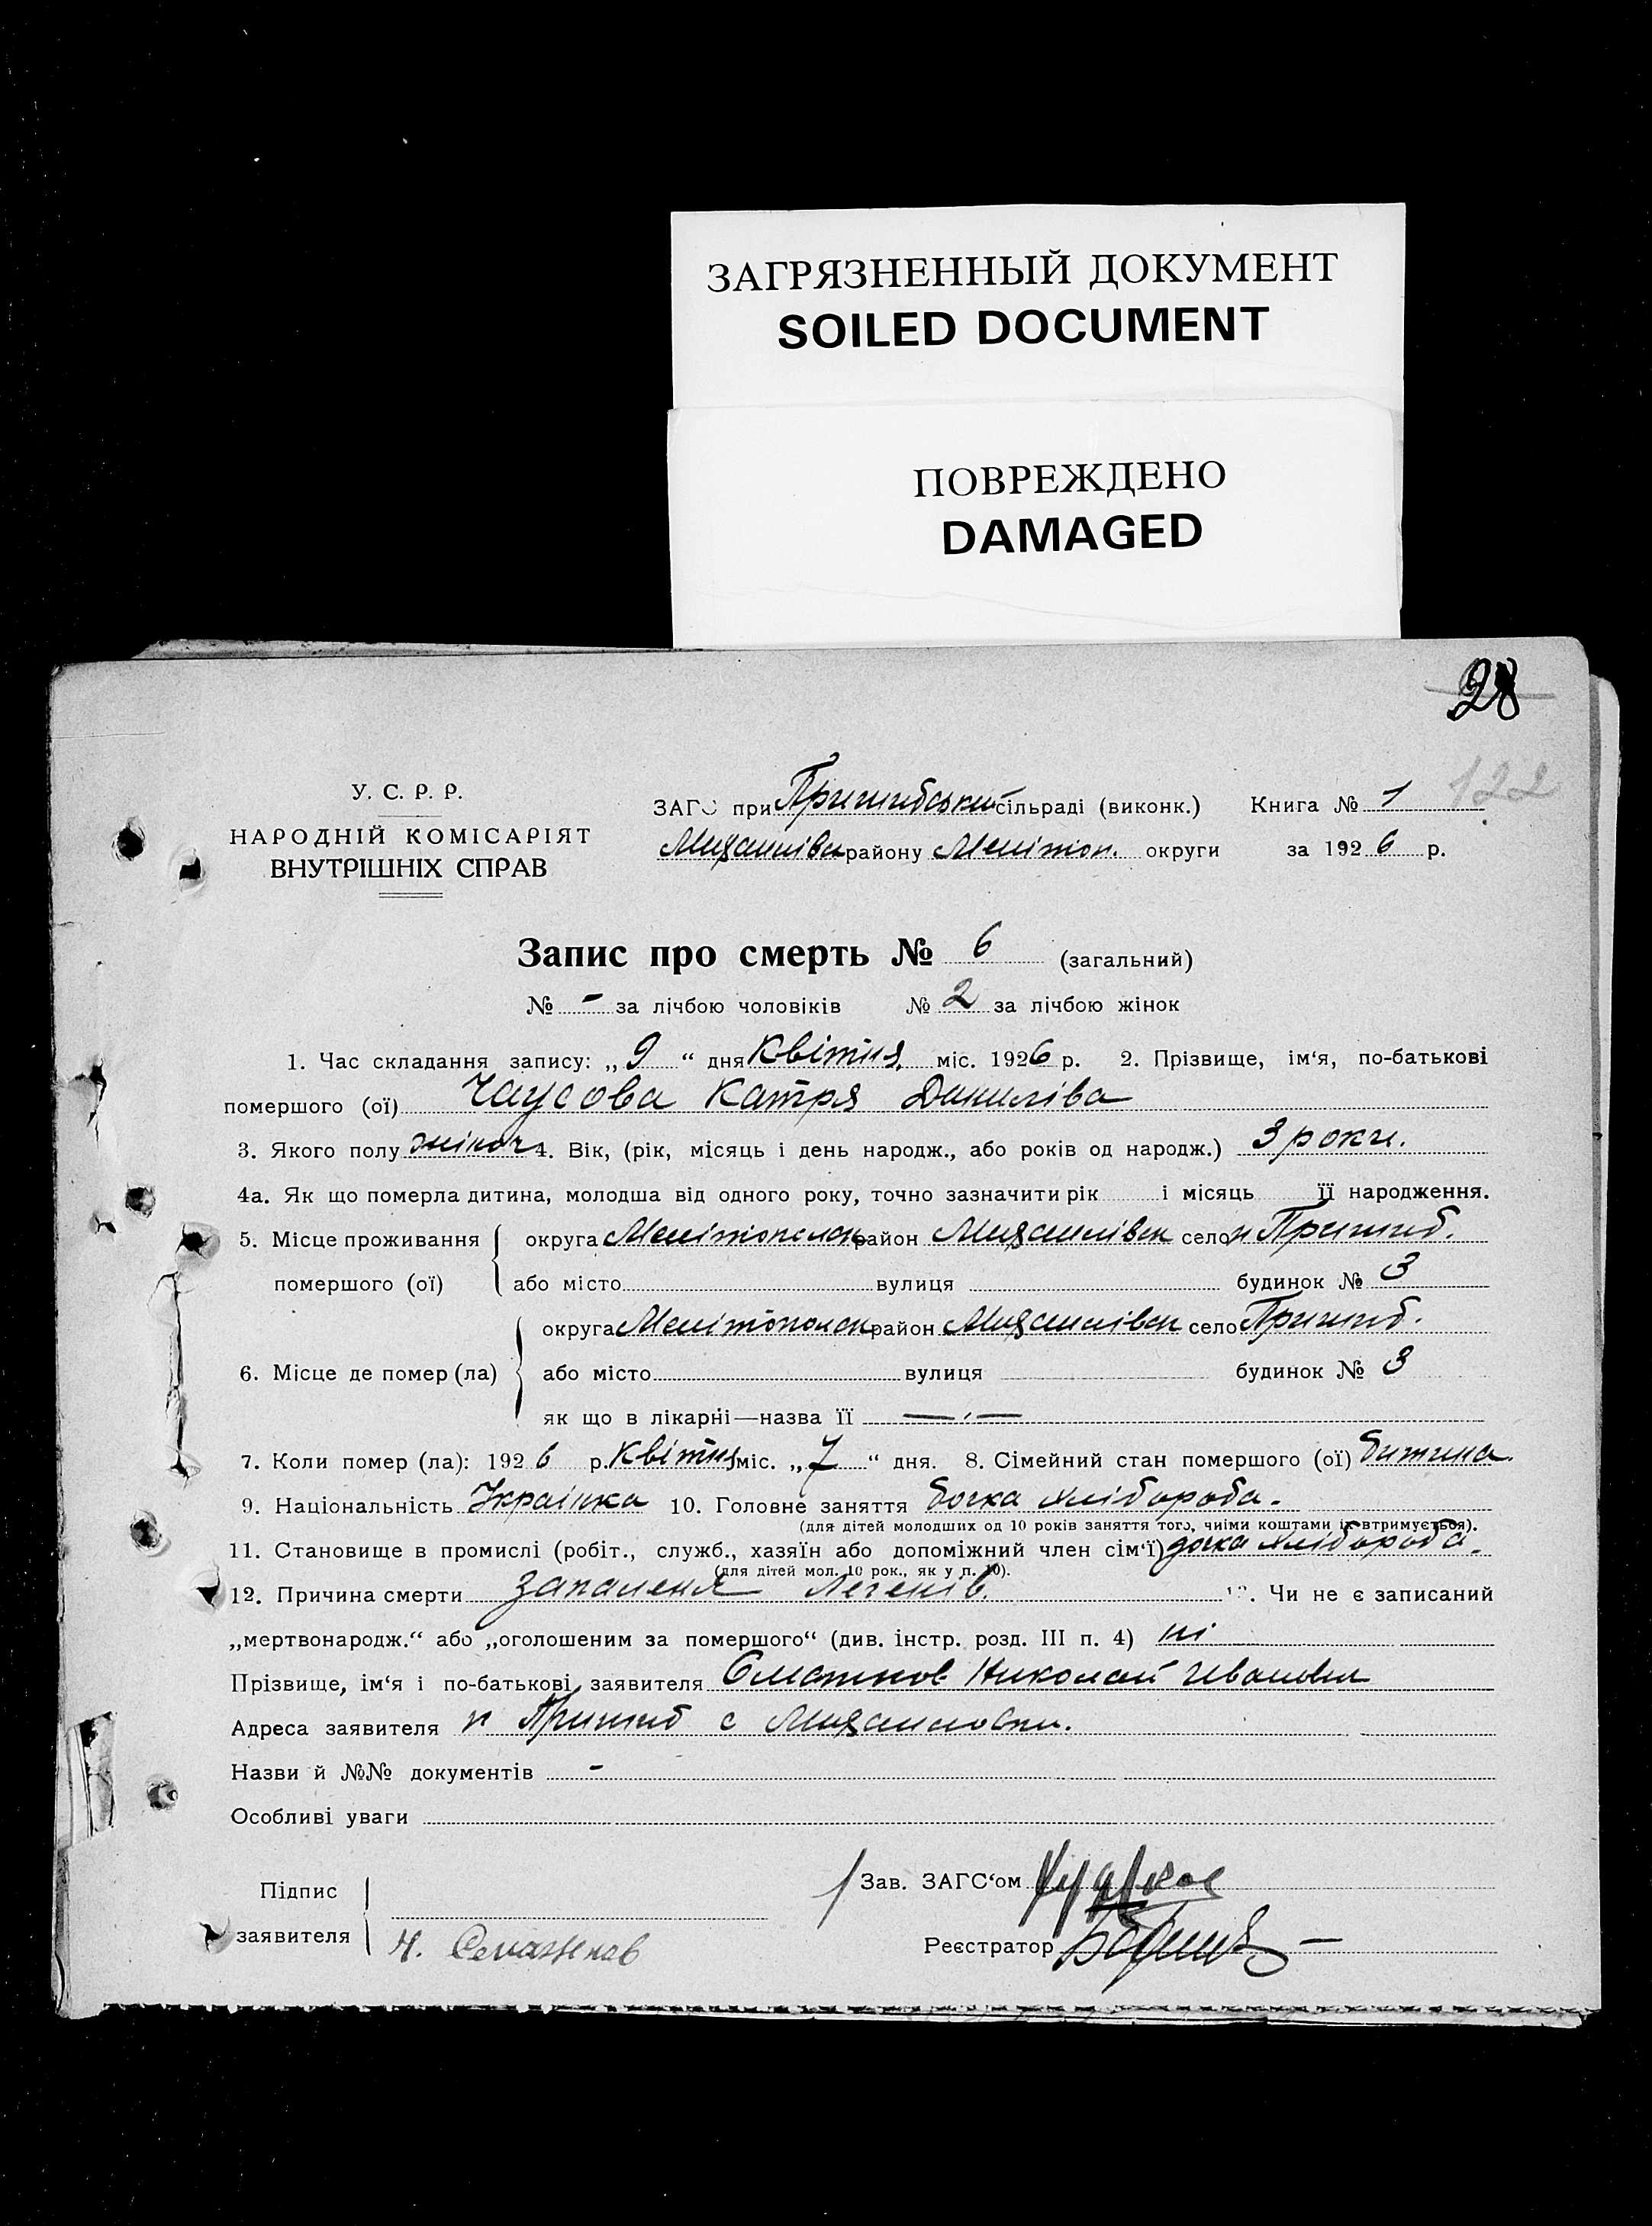 ЗАГРЯЗНЕННЫЙ ДОКУМЕНТ
SOILED DOCUMENT
ПОВРЕЖДЕНО
DAMAGED
28
122
У. С. Р. Р.
НАРОДНІЙ КОМІСАРІЯТ
ВНУТРІШНІХ СПРАВ
ЗАГС при Пришибський сільраді (виконк.) Книга № 1
Михайлівск району Мелітоп. округи за 1926 р.
Запис про смерть № 6 (загальний)
№ - за лічбою чоловіків № 2 за лічбою жінок
1. Час складання запису: „9“ дня Квітня міс. 1926 р. 2. Прізвище, ім‘я, по-батькові
помершого (ої) Чаусова Катря Данилівa
3. Якого полу жіноч 4. Вік, (рік, місяць і день народж., або років од народж.) 3 роки.
4а. Як що померла дитина, молодша від одного року, точно зазначити рік і місяць її народження.
5. Місце проживання округа Мелітопольск район Михайлівск село п Пришиб.
помершого (ої) або місто вулиця будинок № 3
округа Мелітопольск район Михайлівск село Пришиб.
6. Місце де помер (ла) або місто вулиця будинок № 3
як що в лікарні—назва її —,—
7. Коли помер (ла): 1926 р. Квітня міс. „7“ дня. 8. Сімейний стан помершого (ої) дитина.
9. Національність Українка 10. Головне заняття дочка хлібороба.
(для дітей молодших од 10 років заняття того, чиїми коштами їх втримується).
11. Становище в промислі (робіт., служб., хазяїн або допоміжний член сім‘ї) дочка хлібороба.
(для дітей мол. 10 рок., як у п. 10).
12. Причина смерти Запаленя Легенів. 13. Чи не є записаний
„мертвонародж.“ або „оголошеним за помершого“ (див. інстр. розд. III п. 4) ні
Прізвище, ім‘я і по-батькові заявителя Николай Иванович
Адреса заявителя п Пришиб с Михайловки.
Назви й №№ документів -
Особливі уваги
Підпис
заявителя Н.
Зав. ЗАГС‘ом
Реєстратор